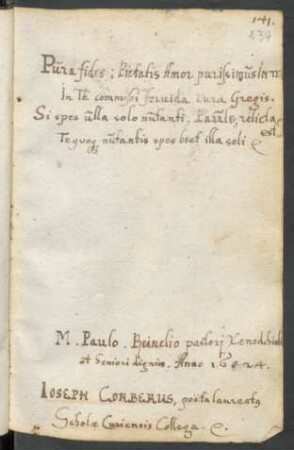 141.
134
Pura fides; Pietatis Amor purissimus in te
In Te commissi fervida cura Gregis.
Si spes ulla solo nutanti, Paule, relicta
est
Te quoq nutantis spes beet illa soli
M. Paulo. Beinelio pastori
et Seniori digniss. Anno 1624.
Ioseph Corberus, poeta laureatq
Scholæ Curiensis Collega.